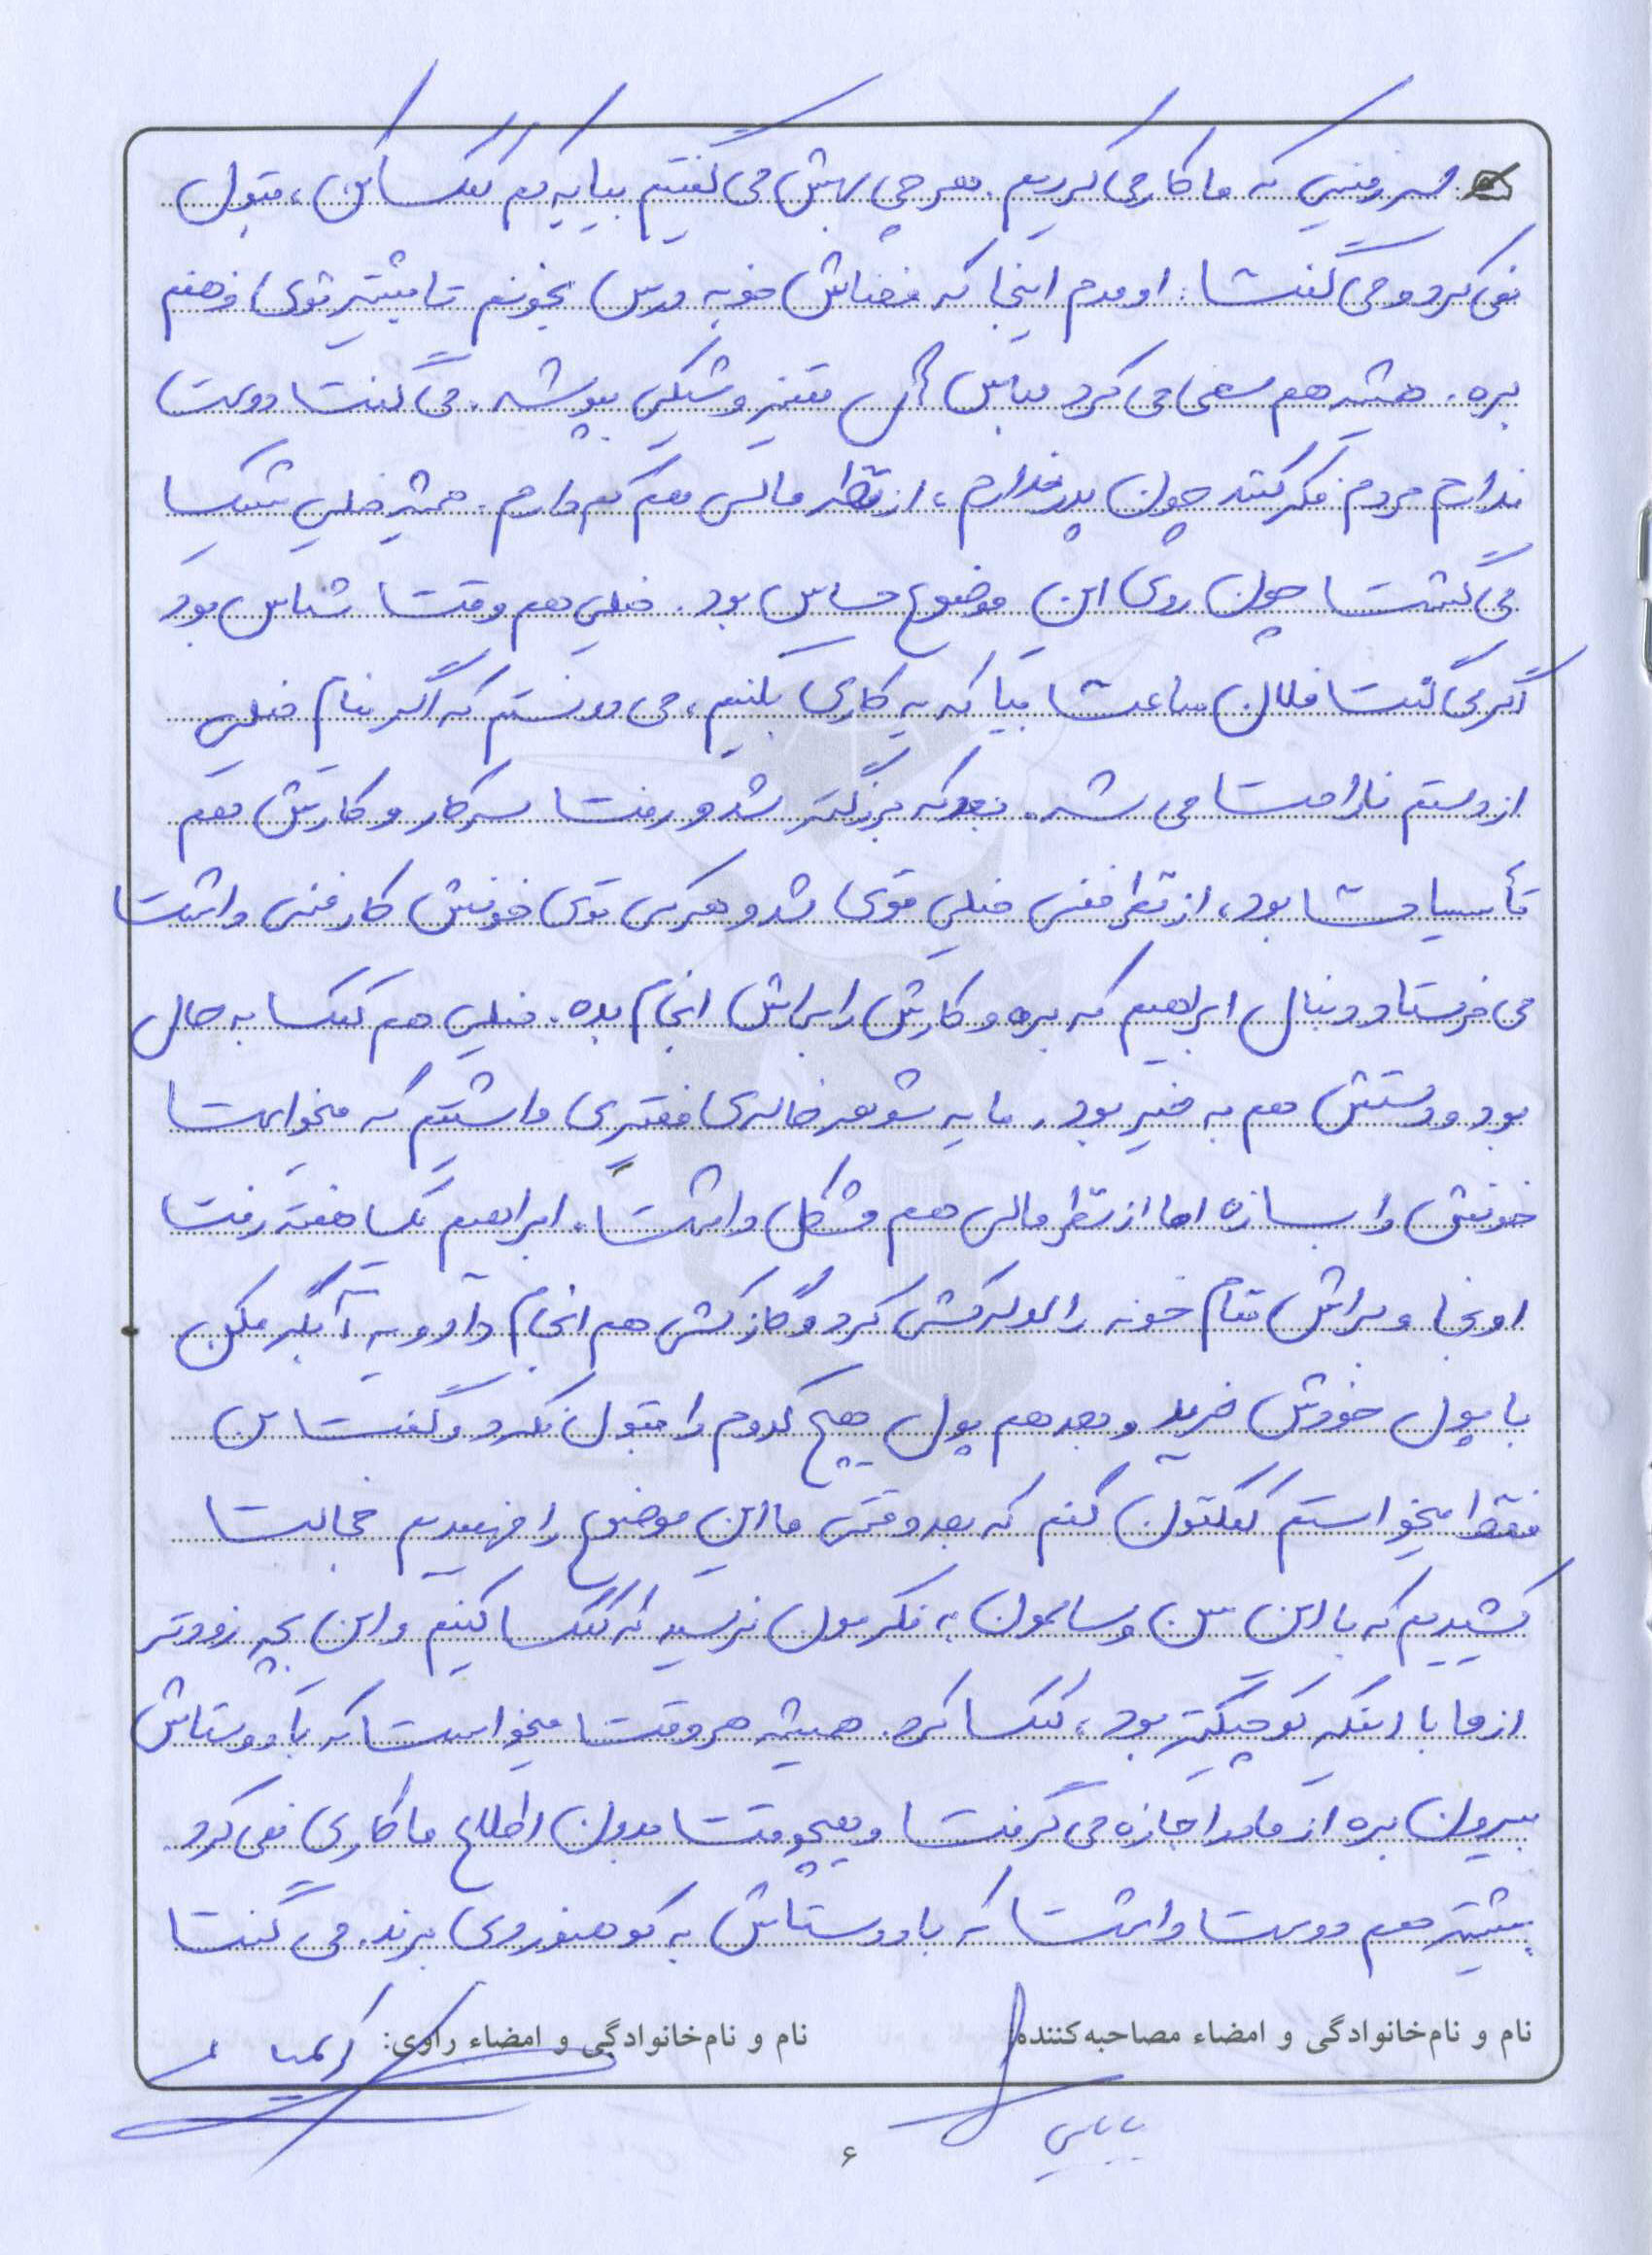 سر زمینی که ما کار می کردیم. هر چی بهش می گفتیم بیا یه کم کمک کن، قبول
نمی کرد و می گفت: اومدم اینجا که فضاش خوبه درس بخونم تا بیشتر توی ذهنم
بره. همیشه هم سعی می کرد لباس های تمیز و شیکی بپوشه. می گفت دوست
ندارم مردم فکر کنند چون پدر ندارم، از نظر مالی هم کم دارم. همیشه خیلی شیک
می گشت چون روی این موضوع حساس بود. خیلی هم وقت شناس بود
اگر می گفت فلان ساعت بیا که یه کاری بکنیم، می دونستم که اگر نیام خیلی
از دستم ناراحت می شه. بعد که بزرگتر شد و رفت سر کار و کارش هم
تأسیسات بود، از نظر فنی خیلی قوی شد و هر کس توی خونش کار فنی داشت
می فرستاد دنبال ابراهیم که بره و کارش را براش انجام بده. خیلی هم کمک به حال
بود و دستش هم به خیر بود. ما یه شوهر خاله ی فقیری داشتیم که میخواست
خونش را بسازه اما از نظر مالی هم مشکل داشت. ابراهیم یک هفته رفت
اونجا و براش تمام خونه را لوله کشی کرد و گاز کشی هم انجام داد و یه آبگرمکن
با پول خودش خرید و بعد هم پول هیچ کدوم را قبول نکرد و گفت من
فقط میخواستم کمکتون کنم که بعد وقتی ما این موضوع را فهمیدیم خجالت
کشیدیم که با این سن و سالمون، فکرمون نرسید که کمک کنیم و این بچه زودتر
از ما با اینکه کوچیکتر بود، کمک کرد. همیشه هر وقت میخواست که با دوستاش
بیرون بره از مادر اجازه می گرفت و هیچوقت بدون اطلاع ما کاری نمی کرد.
بیشتر هم دوست داشت که با دوستاش به کوهنوردی برند. می گفت
نام و نام‌خانوادگی و امضاء مصاحبه‌کننده:
نام و نام‌خانوادگی و امضاء راوی:
بابایی
۶